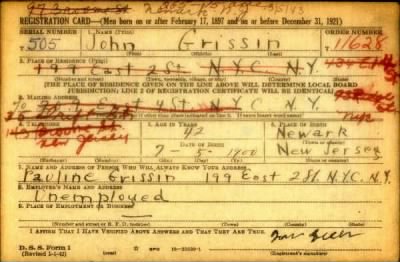 REGISTRATION CARD—(Men born on or after February 17, 1897 and on or before December 31, 1921)
SERIAL NUMBER 1. NAME (Print) ORDER NUMBER
T 505 John Grissin T 11628
(First) (Middle) (Last)
2. PLACE OF RESIDENCE (Print)
199 East 2 St N.Y.C. N.Y.
(Number and street) (Town, township, village, or city) (County) (State)
[THE PLACE OF RESIDENCE GIVEN ON THE LINE ABOVE WILL DETERMINE LOCAL BOARD
JURISDICTION; LINE 2 OF REGISTRATION CERTIFICATE WILL BE IDENTICAL]
3. MAILING ADDRESS
East 4 St N.Y.C.
4. TELEPHONE 5. AGE IN YEARS 6. PLACE OF BIRTH
New Jersey 42 Newark
DATE OF BIRTH
7 - 5 - 1900 New Jersey
(Mo.) (Day) (Yr.)
7. NAME AND ADDRESS OF PERSON WHO WILL ALWAYS KNOW YOUR ADDRESS
Pauline Grissin 199 East 2 St. N.Y.C. N.Y.
8. EMPLOYER'S NAME AND ADDRESS
Unemployed
9. PLACE OF EMPLOYMENT OR BUSINESS
(Number and street or R. F. D. number) (Town) (County) (State)
I AFFIRM THAT I HAVE VERIFIED ABOVE ANSWERS AND THAT THEY ARE TRUE.
D. S. S. Form 1
(Revised 4-1-42) (Registrant's signature)